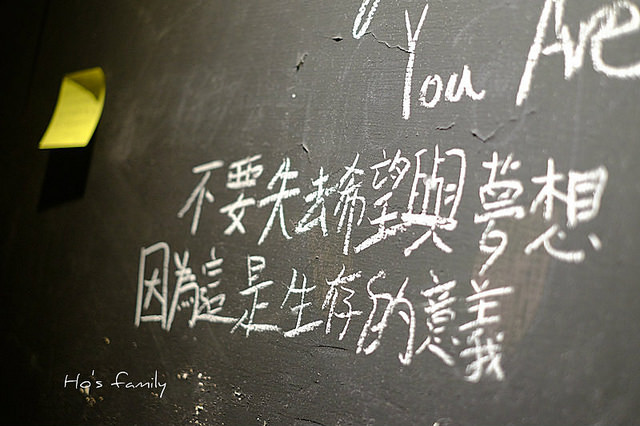 You Are
不要失去希望與夢想
因為這是生存的意義
Ho's family